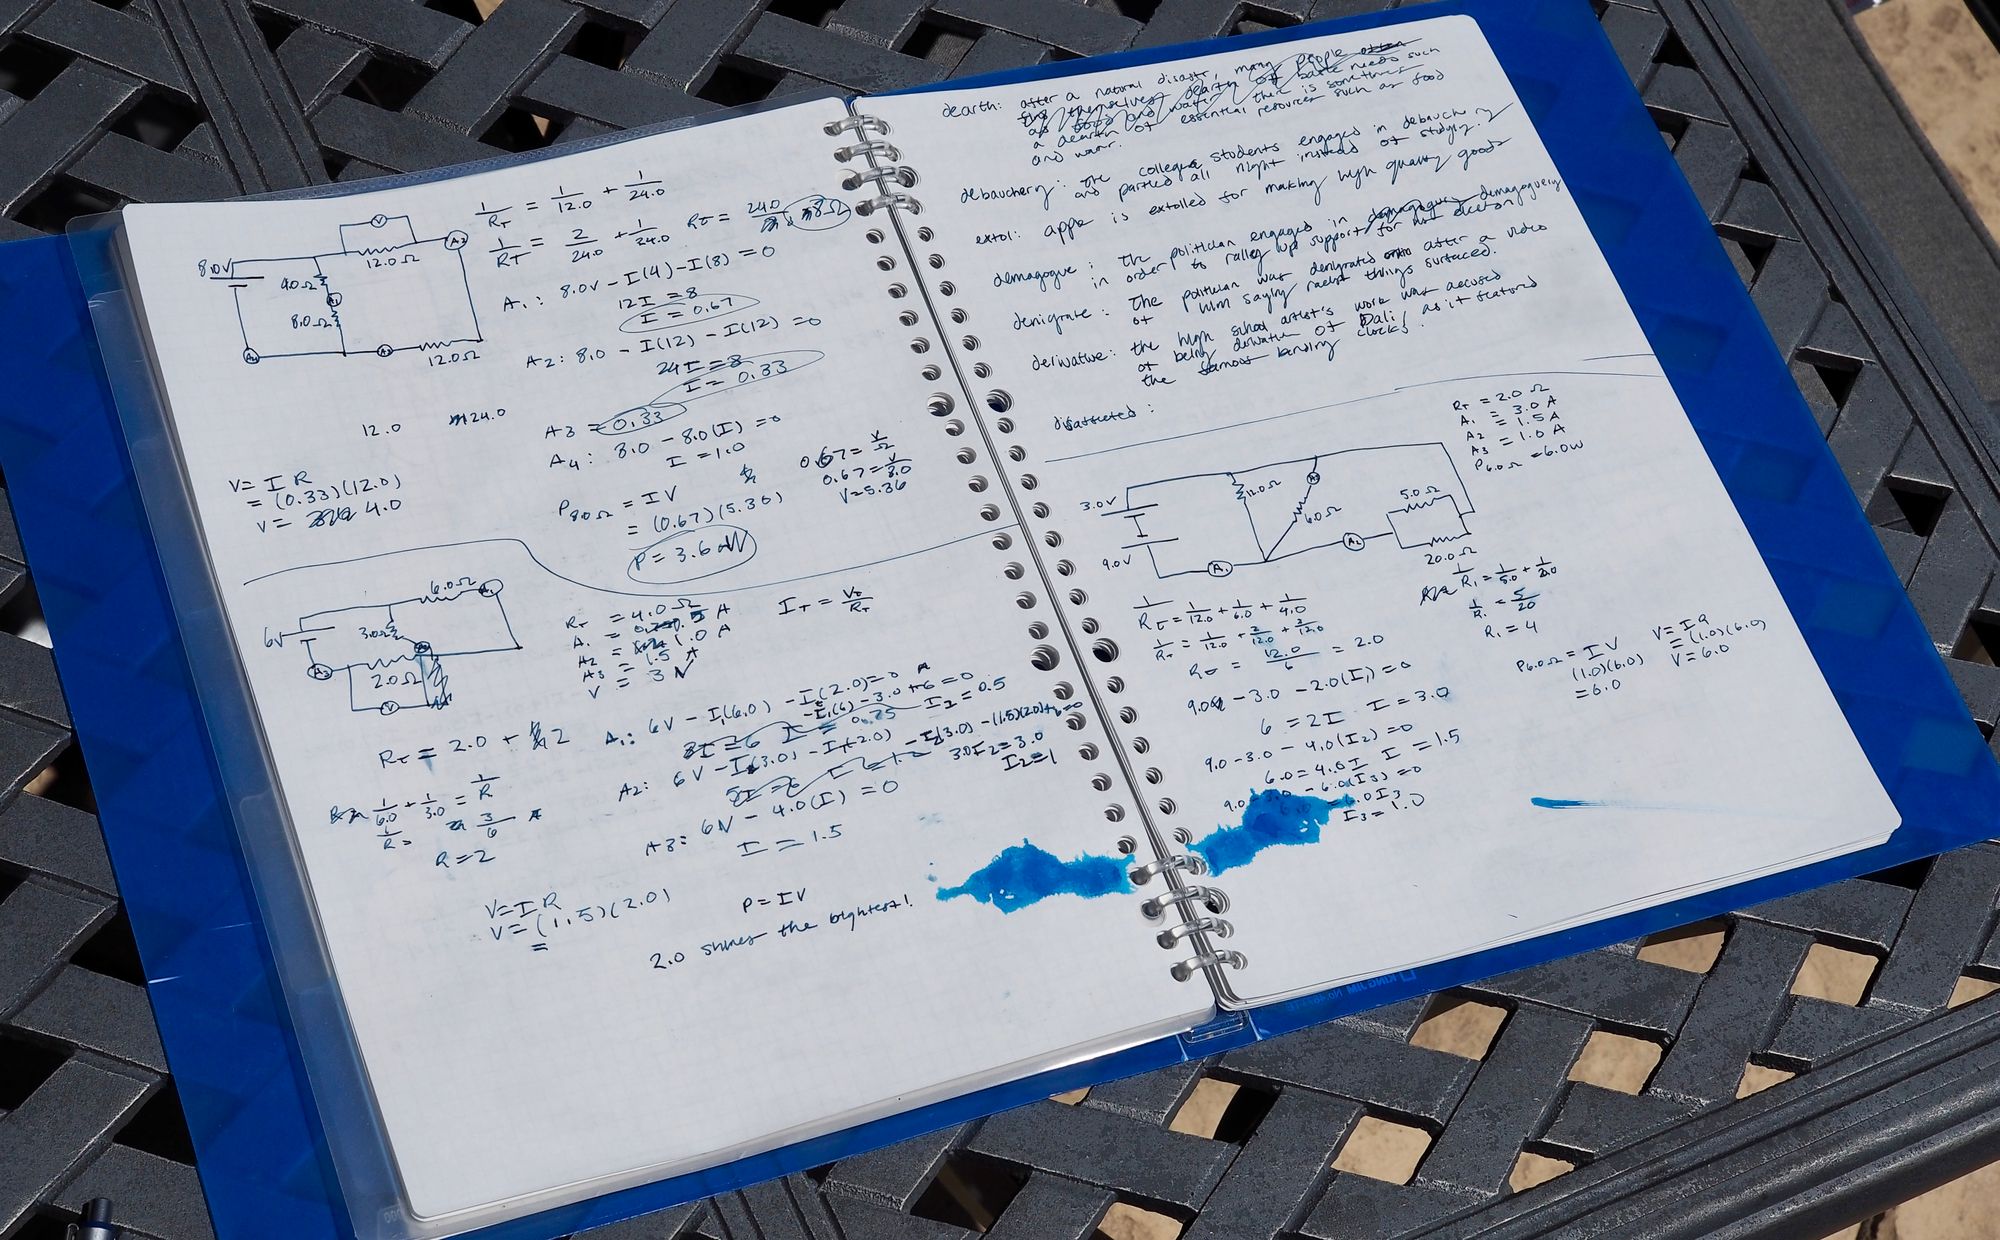 8.0V
V
A2
12.0Ω
4.0Ω
A1
8.0Ω
A4
A3
12.0Ω
1/RT = 1/12.0 + 1/24.0
1/RT = 2/24.0 + 1/24.0 RT = 24.0 8Ω
A1: 8.0V - I(4) - I(8) = 0
12I = 8
I = 0.67
A2: 8.0 - I(12) - I(12) = 0
24I = 8
I = 0.33
12.0 24.0
A3 = 0.33
A4: 8.0 - 8.0(I) = 0
I = 1.0
V = IR
= (0.33)(12.0)
V = 4.0
P8.0Ω = IV
= (0.67)(5.36)
P = 3.6 W
0.67 = V/Ω
0.67 = V/8.0
V = 5.36
6V
6.0Ω
A1
3.0Ω
A2
A3
2.0Ω
V
RT = 4.0Ω
A1 = .5 A
A2 = 1.0 A
A3 = 1.5 A
V = 3V
IT = VT/RT
RT = 2.0 + 2
1/6.0 + 1/3.0 = 1/R
1/R = 3/6
R = 2
A1: 6V - I1(6.0) - I(2.0) = 0
-I1(6) - 3.0 + 6 = 0
3I = 6 I = 0.75 I1 = 0.5
A2: 6V - I(3.0) - I(2.0) - I2(3.0) - (1.5)(2.0) + 6 = 0
5I = 6 I = 1.2 3.0I2 = 3.0
I2 = 1
A3: 6V - 4.0(I) = 0
I = 1.5
V = IR
V = (1.5)(2.0)
=
P = IV
2.0 shines the brightest!
dearth: after a natural disaster, many people often
find themselves dearth of basic needs such
as food and water there is sometimes
a dearth of essential resources such as food
and water.
debauchery: the college students engaged in debauchery
and partied all night instead of studying.
extol: apple is extolled for making high quality goods
demagogue: the politician engaged in demagoguery demagoguery
in order to rally up support for his election
denigrate: The politician was denigrated after a video
of him saying racist things surfaced.
derivative: the high school artist's work was accused
of being derivative of Dali, as it featured
the famous bending clocks.
disaffected:
RT = 2.0 Ω
A1 = 3.0 A
A2 = 1.5 A
A3 = 1.0 A
P6.0Ω = 6.0W
3.0V
9.0V
12.0Ω
A3
6.0Ω
A1
A2
5.0Ω
20.0Ω
1/RT = 1/12.0 + 1/6.0 + 1/4.0
1/RT = 1/12.0 + 2/12.0 + 3/12.0
RT = 12.0/6 = 2.0
9.0 - 3.0 - 2.0(I1) = 0
6 = 2I I = 3.0
9.0 - 3.0 - 4.0(I2) = 0
6.0 = 4.0I I = 1.5
9.0 - 3.0 - 6.0(I3) = 0
6.0 = 6.0I3
I3 = 1.0
1/R1 = 1/5.0 + 1/20
1/R1 = 5/20
R1 = 4
P6.0Ω = IV
(1.0)(6.0)
= 6.0
V = IR
= (1.0)(6.0)
V = 6.0
KING JIM